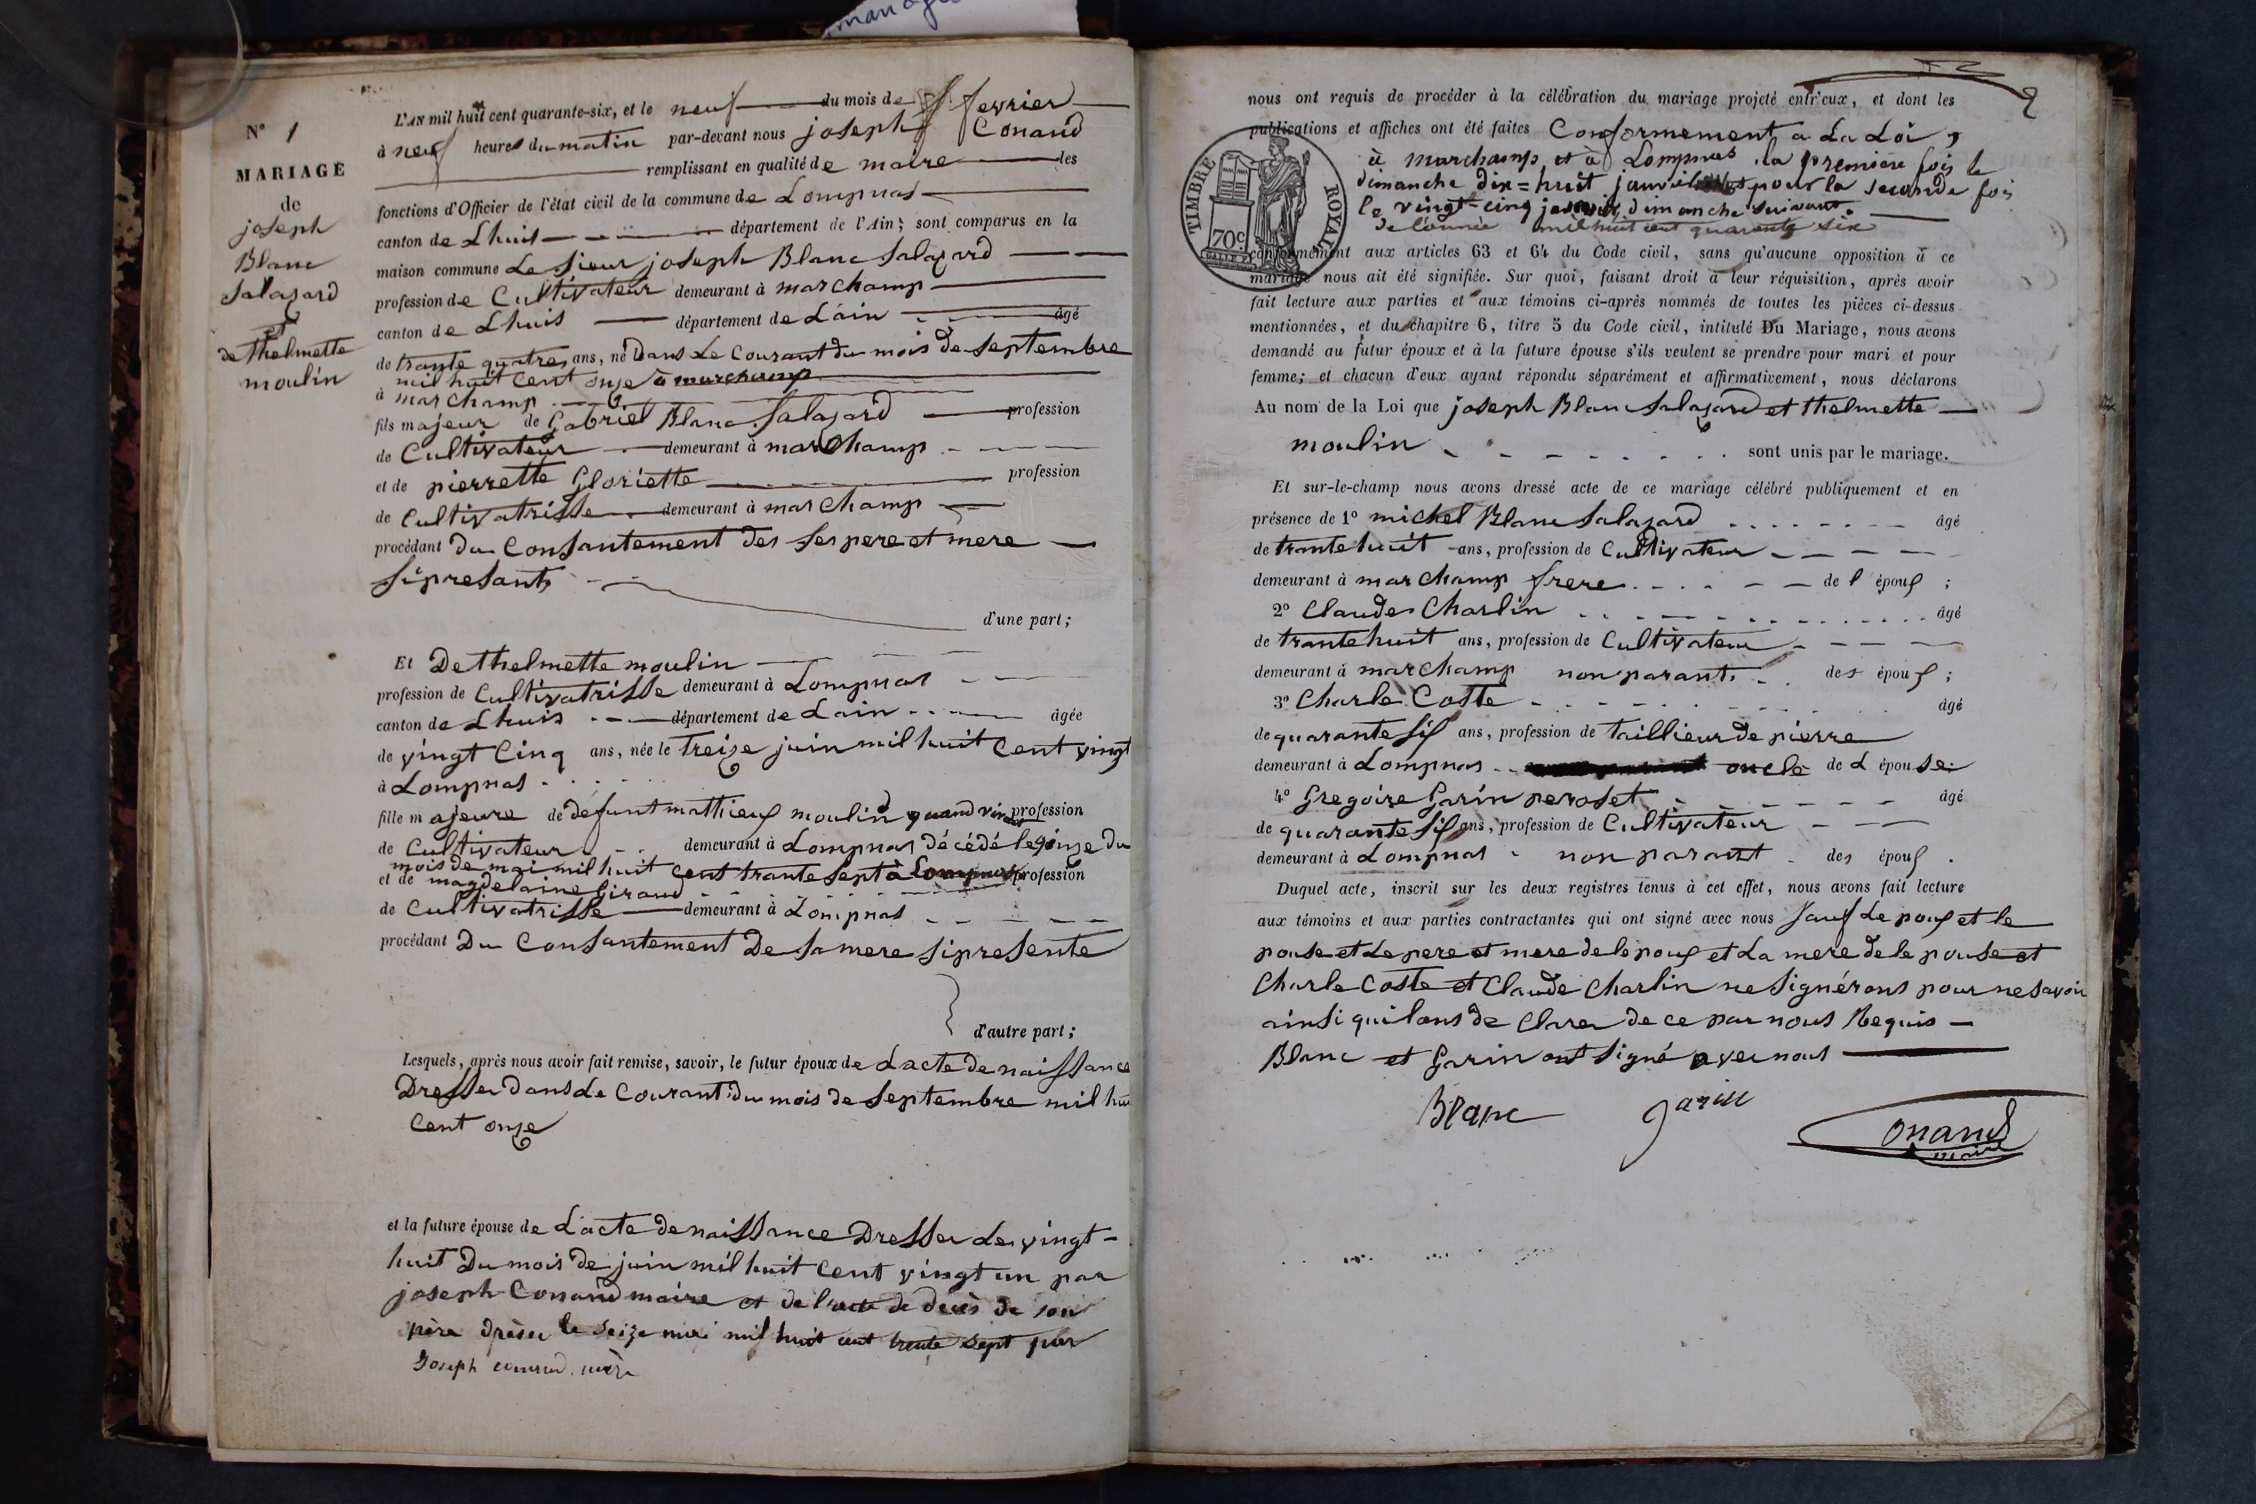 N° 1
MARIAGE
de
joseph
Blanc
Salazard
et
de thelmette
moulin
L'AN mil huit cent quarante-six, et le neuf du mois de fevrier
à neuf heures du matin par-devant nous joseph Conand
remplissant en qualité de maire les
fonctions d'Officier de l'état civil de la commune de Lompnas
canton de Lhuis département de l'Ain; sont comparus en la
maison commune Le sieur joseph Blanc Salazard
profession de Cultivateur demeurant à marchamp
canton de Lhuis département de Lain âgé
de trante quatre ans, né Dans Le Courant du mois de Septembre
mil huit cent onze à marchamp
à marchamp
fils majeur de Gabriel Blanc Salazard profession
de Cultivateur demeurant à marchamp
et de pierrette Gloriette profession
de Cultivatrisse demeurant à marchamp
procédant du Consantement des ses pere et mere
sipresants
d'une part;
Et De thelmette moulin
profession de Cultivatrisse demeurant à Lompnas
canton de Lhuis département de Lain âgée
de vingt Cinq ans, née le treize juin mil huit Cent vingt
à Lompnas
fille majeure de defunt mathieux moulin quand vivait profession
de Cultivateur demeurant à Lompnas décédé le quinze du
mois de mai mil huit cent trante sept à Lompnas
et de magdelaine Giraud profession
de Cultivatrisse demeurant à Lompnas
procédant Du Consantement De sa mere sipresente
d'autre part;
Lesquels, après nous avoir fait remise, savoir, le futur époux de Lacte de naissance
Dresser dans Le Courant du mois de Septembre mil hui
Cent onze
et la future épouse de Lacte de naissance Dresser Le vingt-
huit Du mois de juin mil huit Cent vingt un par
joseph Conand maire et de l'acte de décès de son
père drèsser le seize mai mil huit cent trente sept par
Joseph conand maire
nous ont requis de procéder à la célébration du mariage projeté entr'eux, et dont les
publications et affiches ont été faites Conformement a La Loi,
à marchamp et à Lompnas la première fois le
dimanche dix=huit janvier pour la seconde fois
le vingt-cinq janvier dimanche suivant
de l'année mil huit cent quarante six
conformément aux articles 63 et 64 du Code civil, sans qu'aucune opposition à ce
mariage nous ait été signifiée. Sur quoi, faisant droit à leur réquisition, après avoir
fait lecture aux parties et aux témoins ci-après nommés de toutes les pièces ci-dessus
mentionnées, et du chapitre 6, titre 5 du Code civil, intitulé Du Mariage, nous avons
demandé au futur époux et à la future épouse s'ils veulent se prendre pour mari et pour
femme; et chacun d'eux ayant répondu séparément et affirmativement, nous déclarons
Au nom de la Loi que joseph Blanc Salazard et thelmette
moulin sont unis par le mariage.
Et sur-le-champ nous avons dressé acte de ce mariage célébré publiquement et en
présence de 1° michel Blanc Salazard âgé
de trante huit ans, profession de Cultivateur
demeurant à marchamp frere de l époux ;
2° Claude Charlin âgé
de trante huit ans, profession de Cultivateur
demeurant à marchamp non parant des époux ;
3° Charle Coste âgé
de quarante six ans, profession de taillieur de pierre
demeurant à Lompnas oncle de L épouse;
4° Gregoire Garin peroset âgé
de quarante six ans, profession de Cultivateur
demeurant à Lompnas non parant des époux .
Duquel acte, inscrit sur les deux registres tenus à cet effet, nous avons fait lecture
aux témoins et aux parties contractantes qui ont signé avec nous sauf Le poux et le
pouse et Le pere et mere de le poux et La mere de le pouse et
Charle Coste et Claude Charlin ne signérons pour ne savoir
ainsi quilons de Clarer de ce par nous Requis
Blanc et Garin ont signé avec nous
Blanc garin Conand
maire
TIMBRE ROYAL
70c.